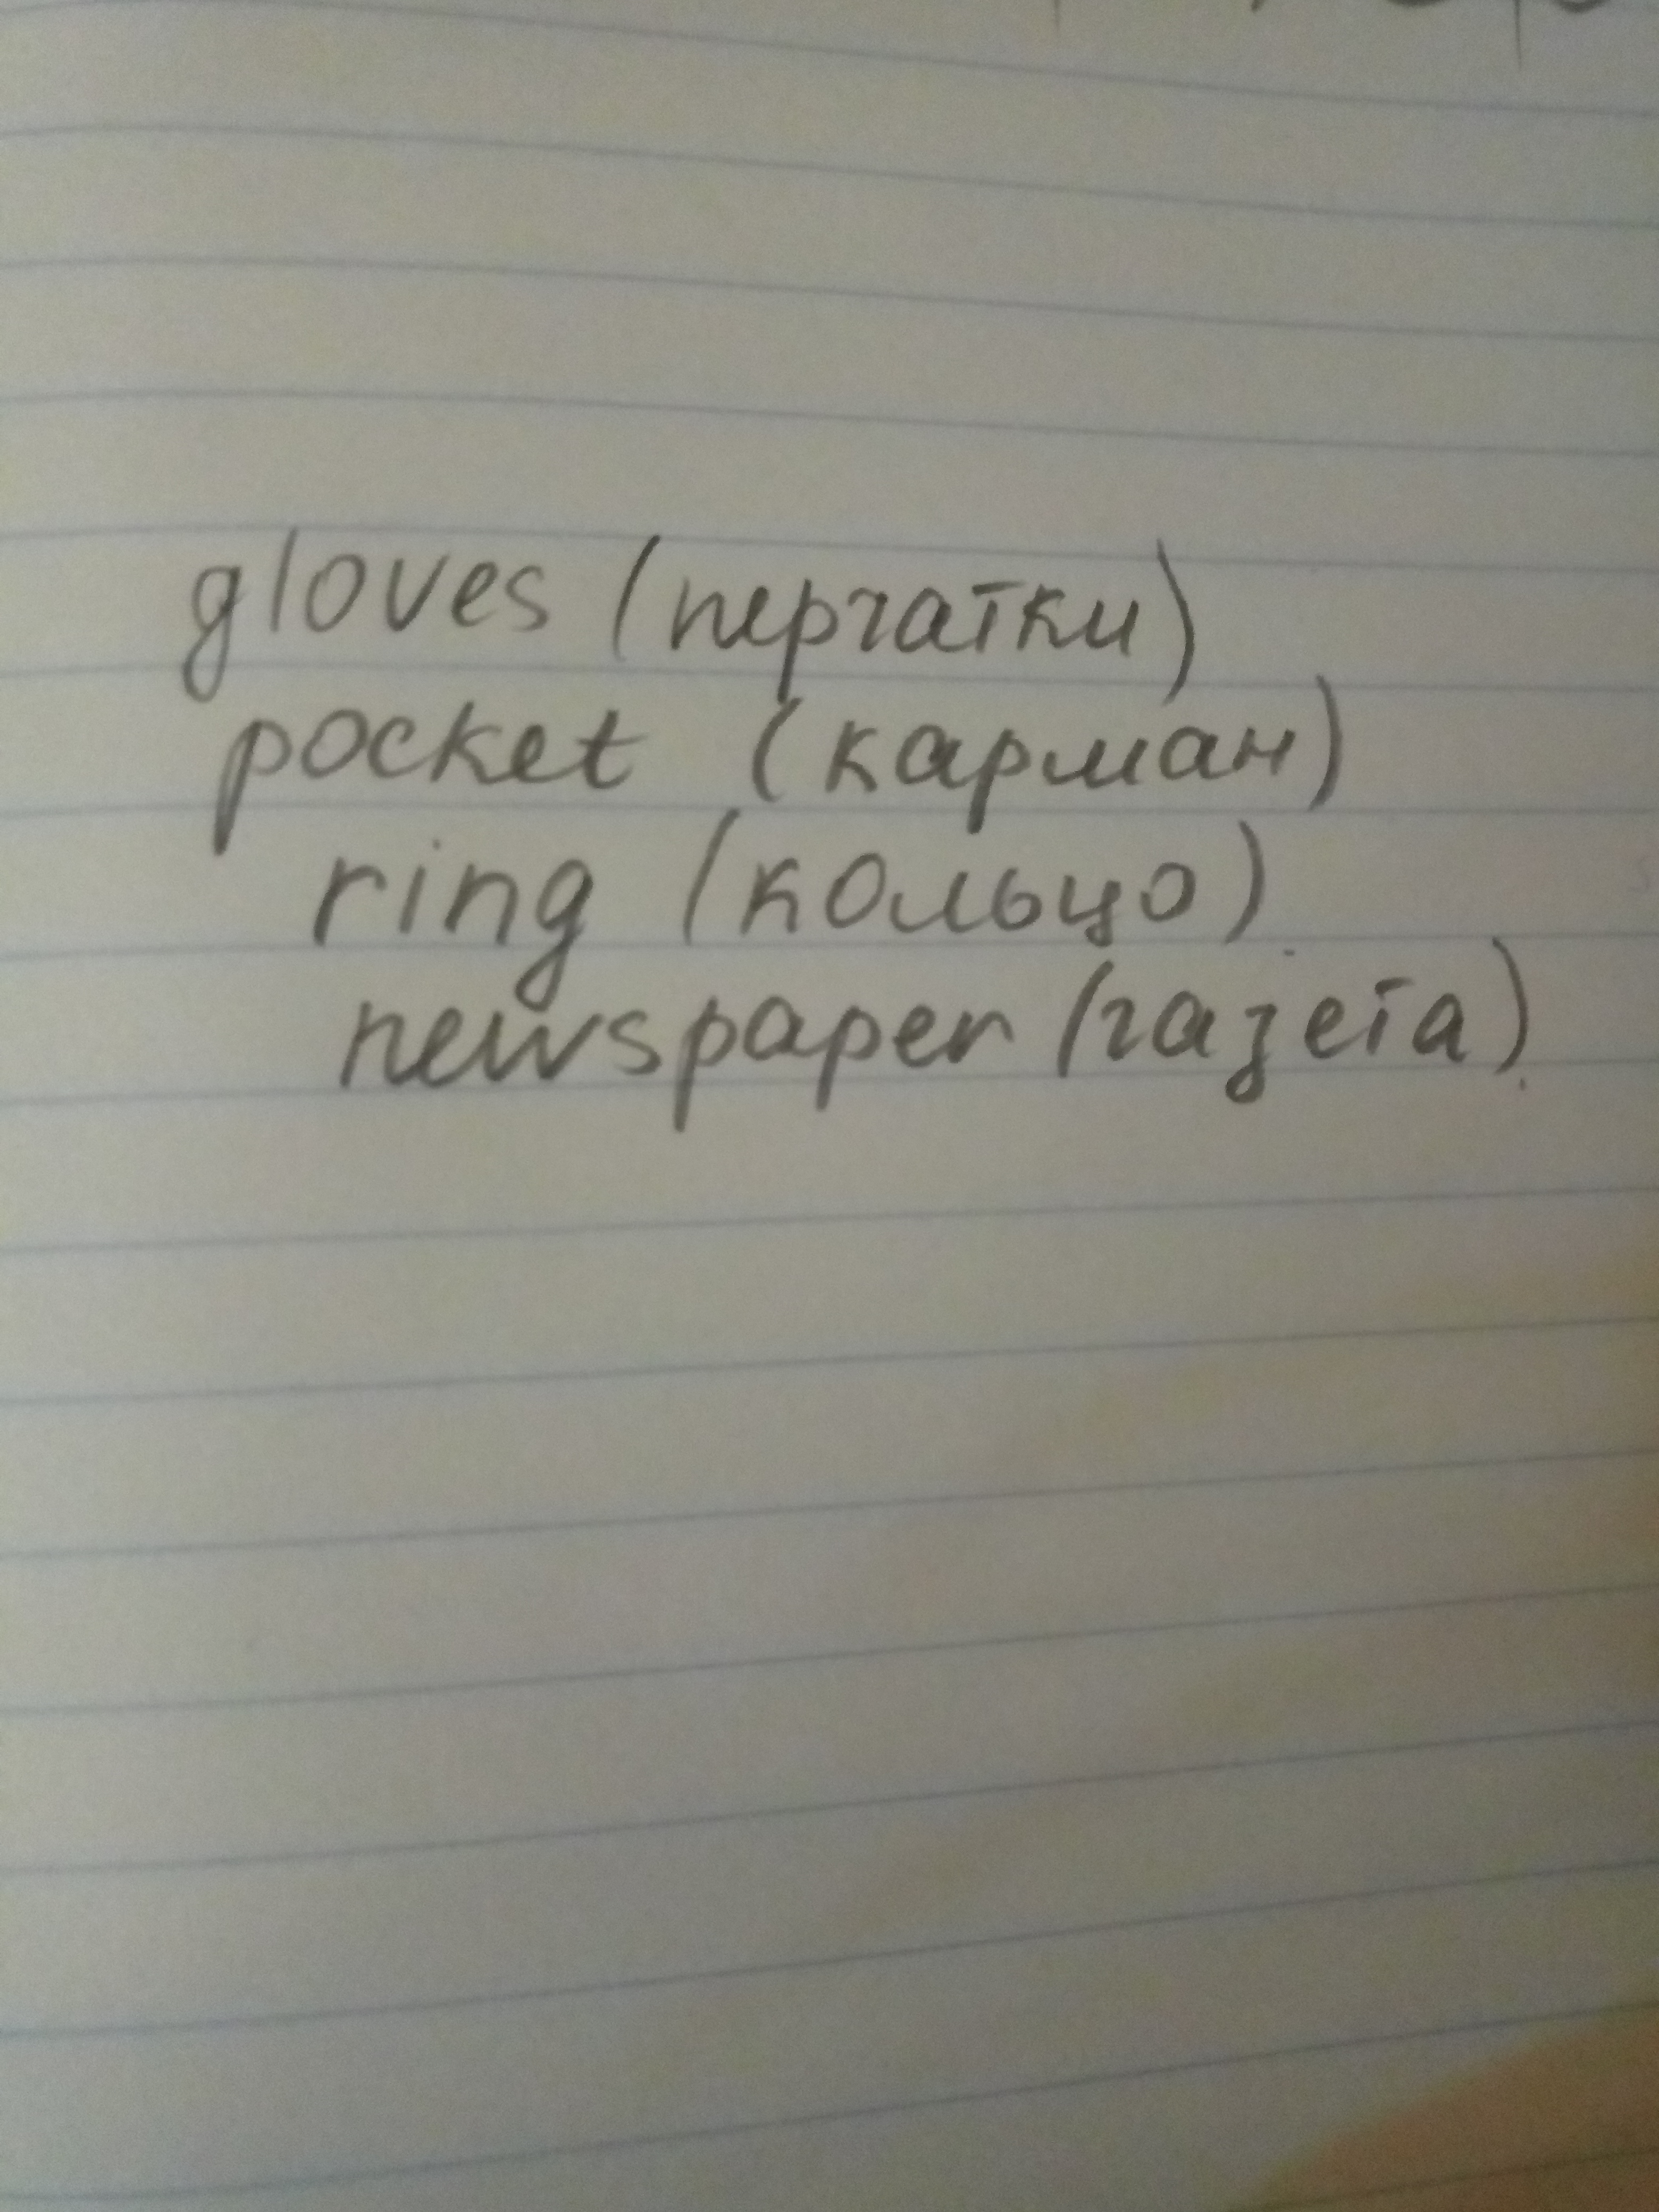 gloves (перчатки)
pocket (карман)
ring (кольцо)
newspaper (газета)